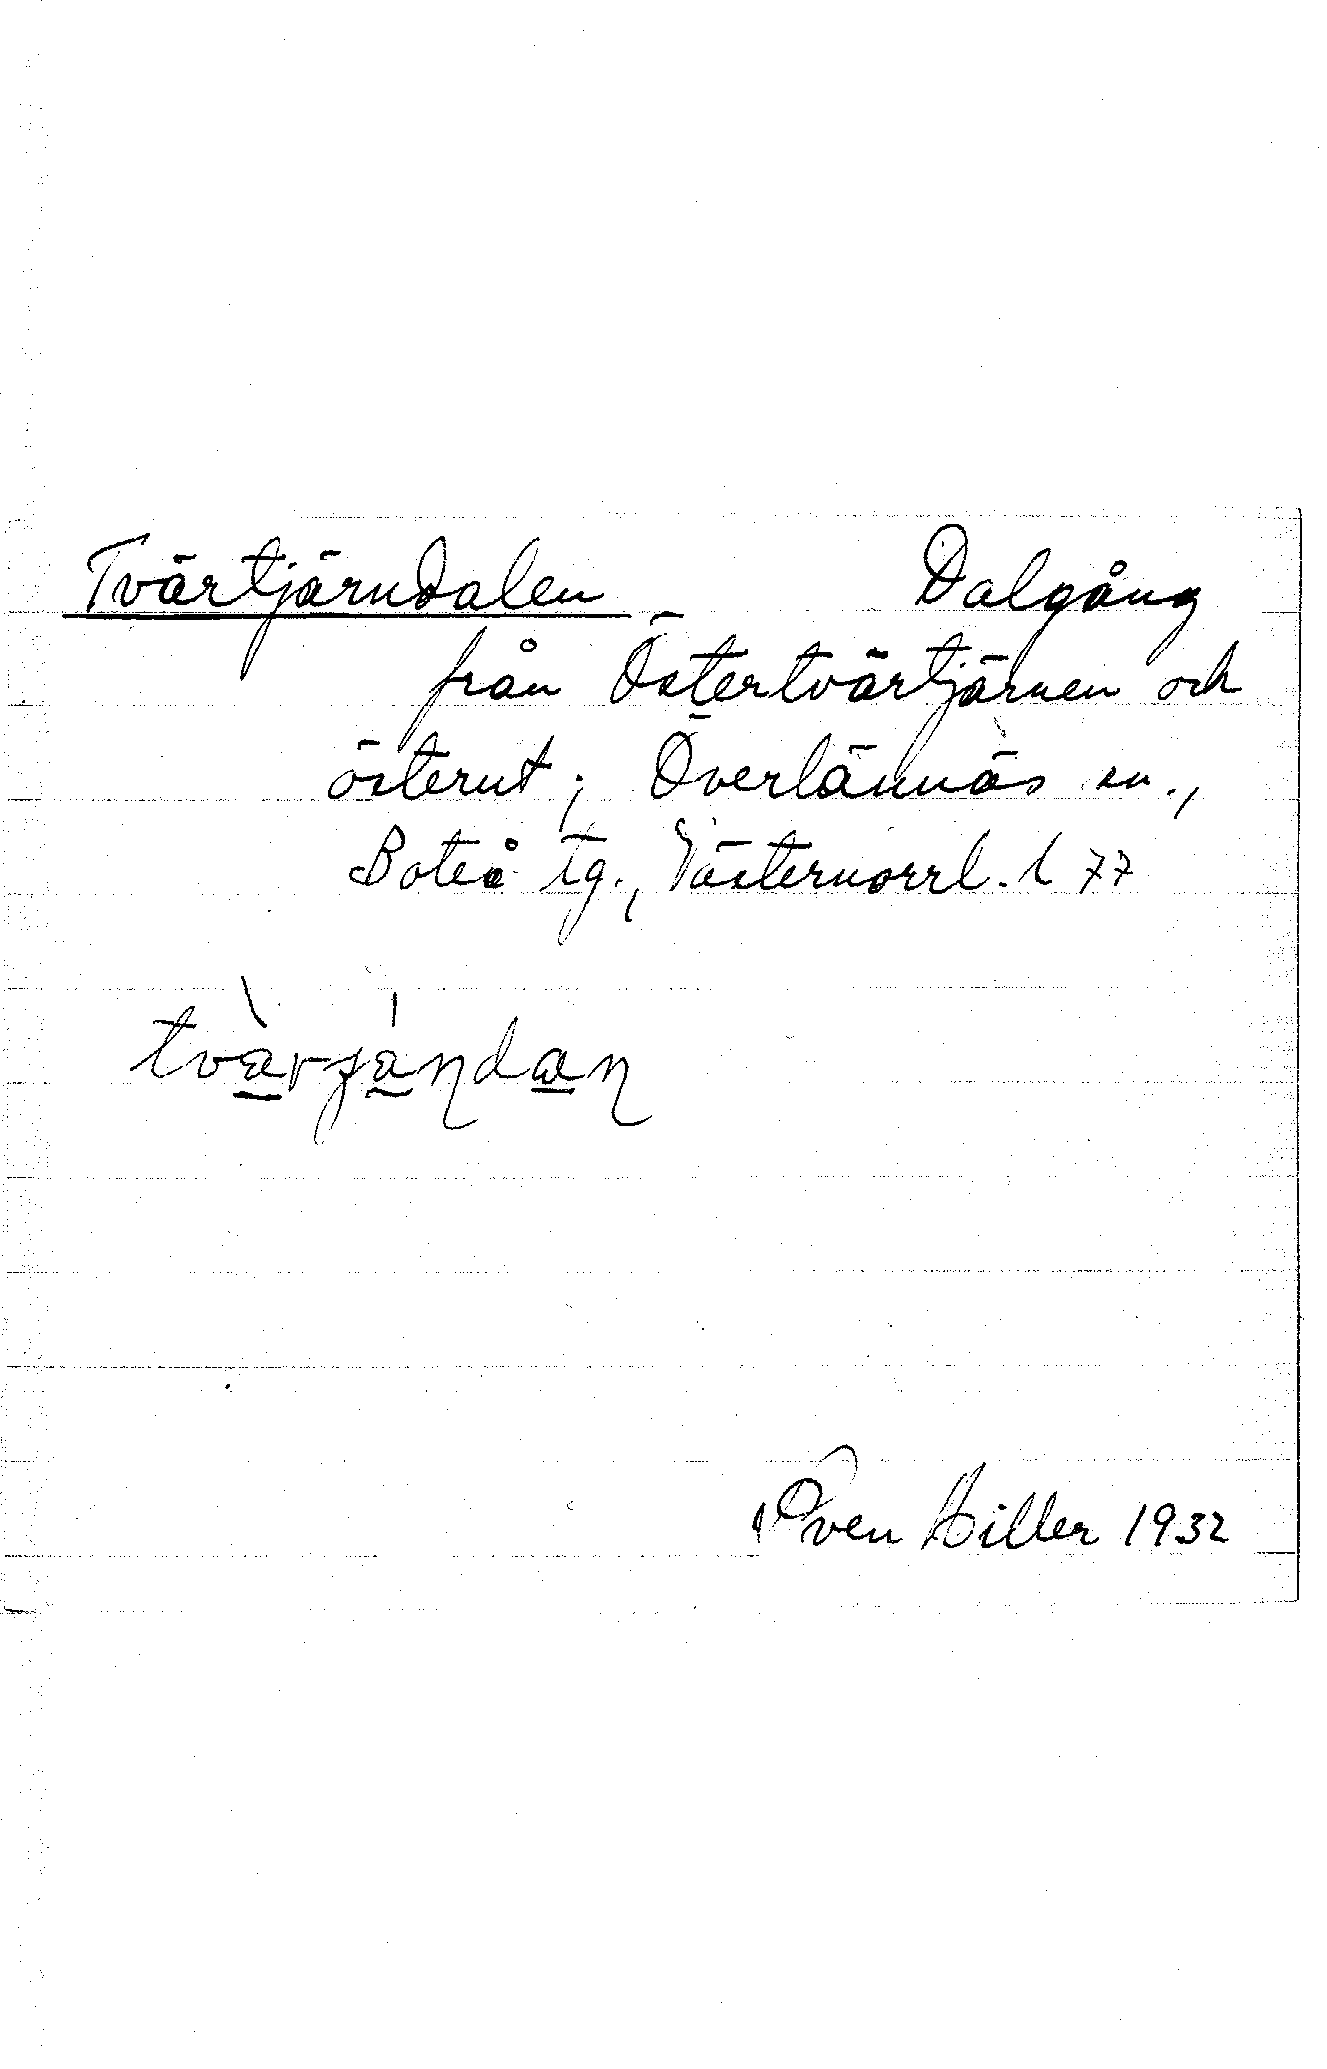 Tvärtjärndalen Dalgång
från Östertvärtjärnen och
österut; Överlännäs sn.,
Boteå tg., Västernorrl. l 77
tvàrjándan
Sven Hiller 1932